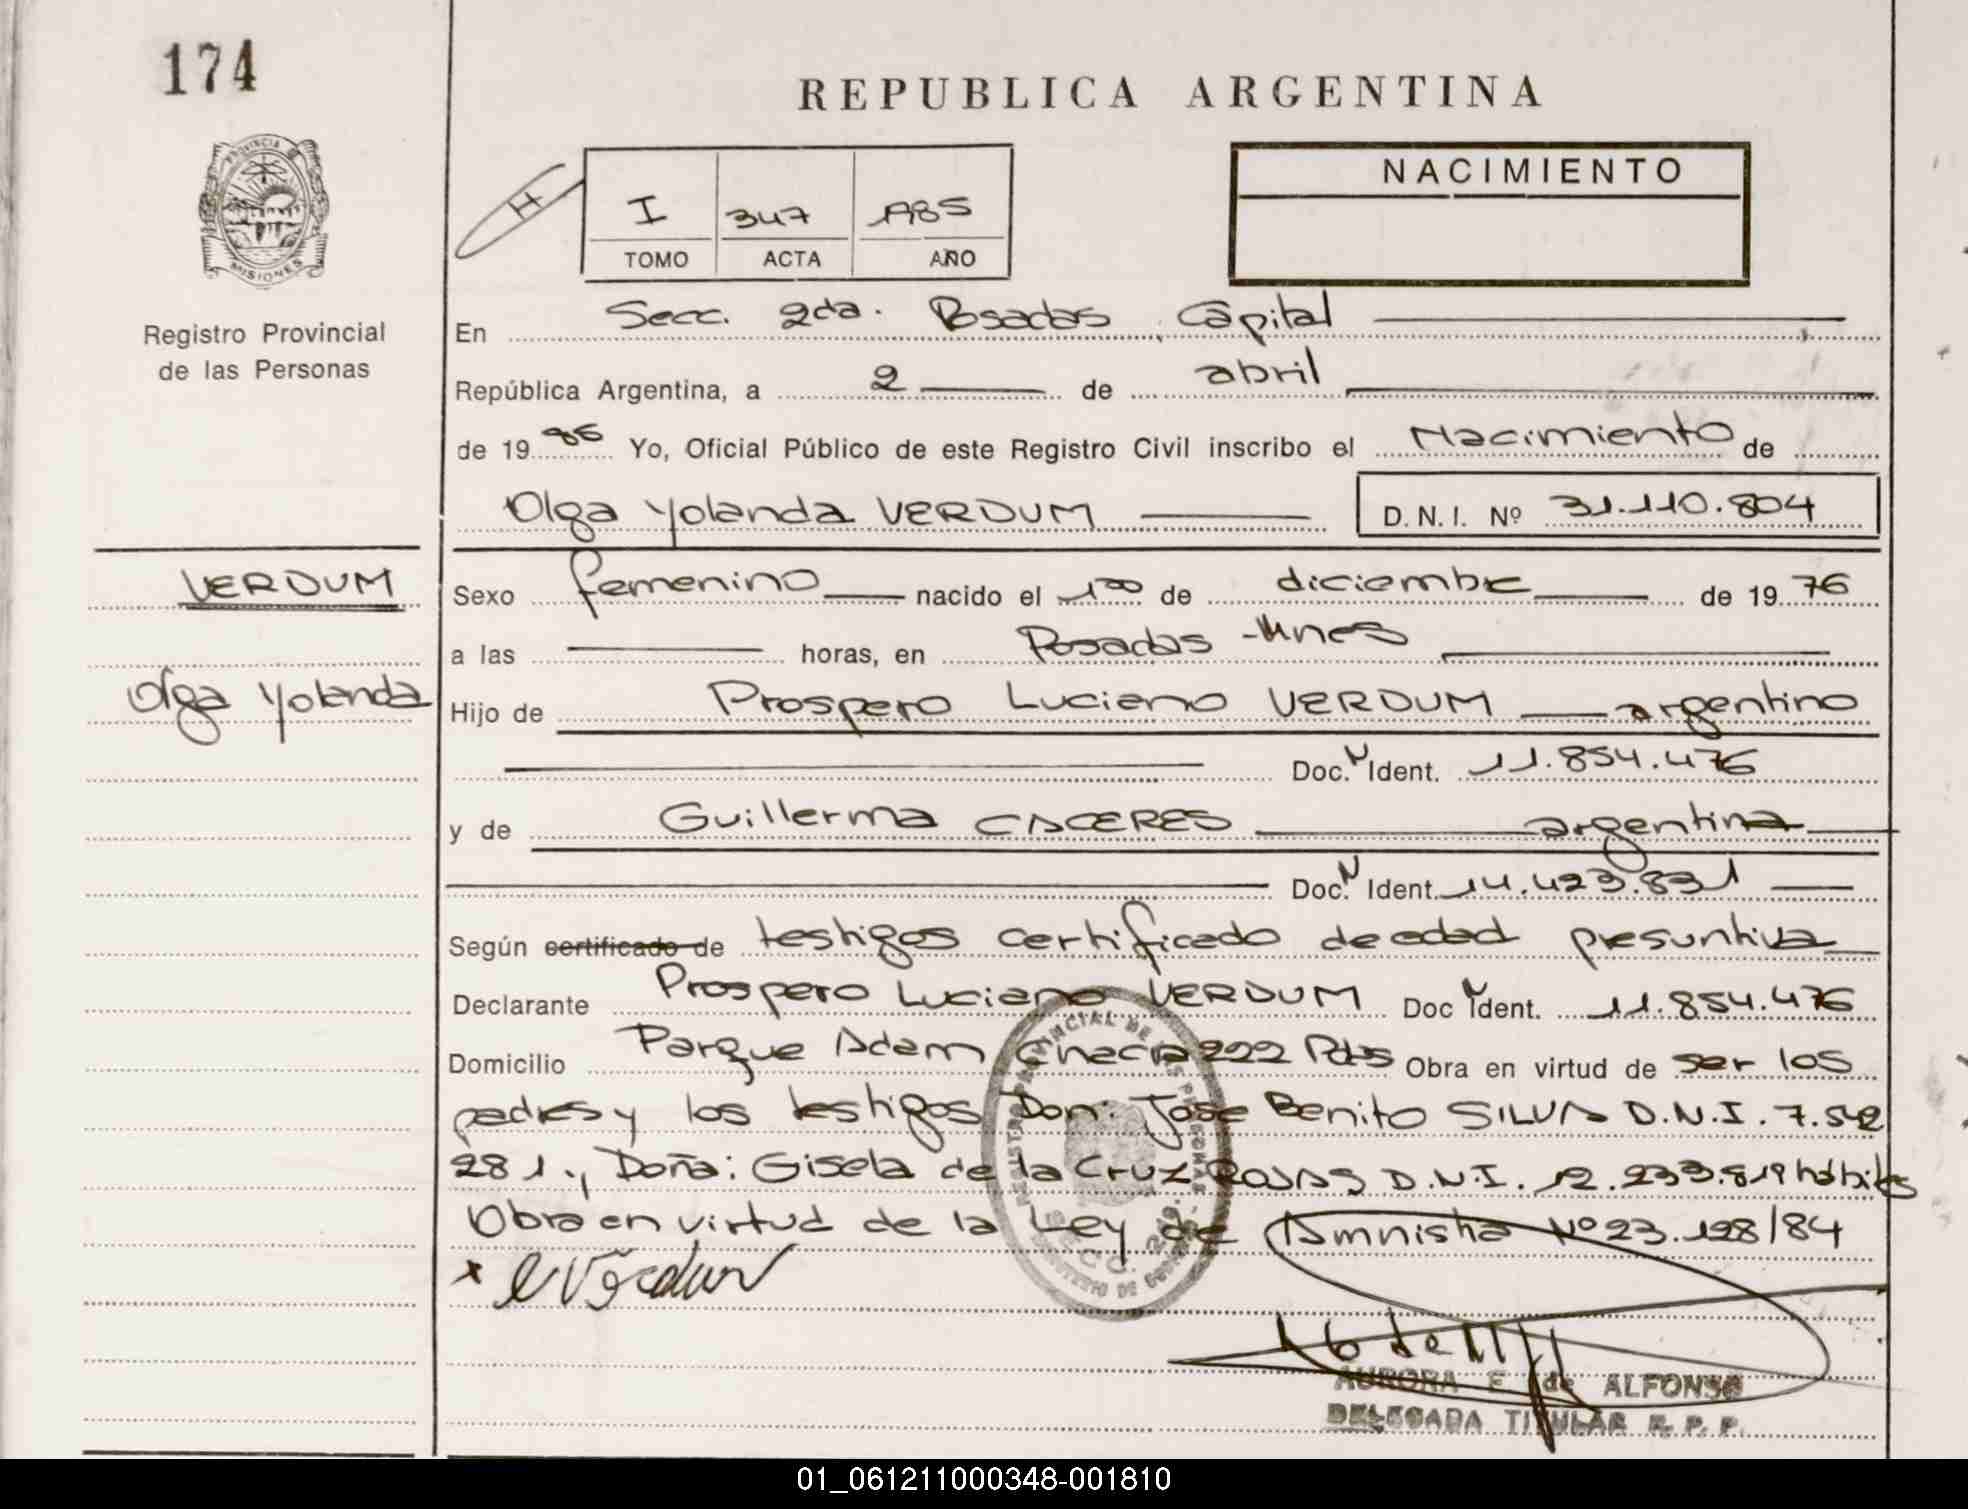 174
REPUBLICA ARGENTINA
PROVINCIA DE MISIONES
Registro Provincial
de las Personas
H
I 347 1985
TOMO ACTA AÑO
NACIMIENTO
En Secc. 2da. Posadas, Capital
República Argentina, a 2 de abril
de 19 85 Yo, Oficial Público de este Registro Civil inscribo el Nacimiento de
Olga Yolanda VERDUM D.N.I. Nº 31.110.804
VERDUM
Olga Yolanda
Sexo femenino nacido el 1ro de diciembre de 19 76
a las horas, en Posadas - Mnes
Hijo de Prospero Luciano VERDUM argentino
Doc. N Ident. 11.854.476
y de Guillerma CACERES argentina
Doc. N Ident. 14.423.831
Según certificado de testigos certificado de edad presuntiva
Declarante Prospero Luciano VERDUM Doc N Ident. 11.854.476
Domicilio Parque Adam Chacra 222 Pdas Obra en virtud de ser los
padres y los testigos Don: Jose Benito SILVA D.N.I. 7.542
281., Doña: Gisela de la Cruz ROJAS D.N.I. 12.233.819 hábiles
Obra en virtud de la Ley de Amnistia Nº 23.128/84
REGISTRO PROVINCIAL DE LAS PERSONAS
SECC. 2da.
MINISTERIO DE GOBIERNO
x
AURORA E de ALFONSO
DELEGADA TITULAR R. P. P.
01_061211000348-001810